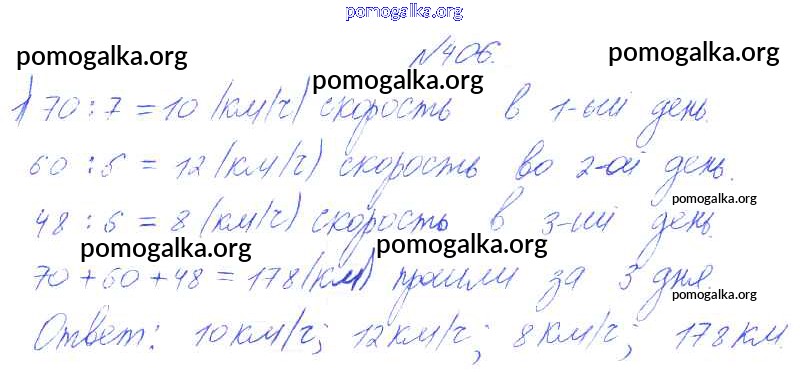 pomogalka.org
pomogalka.org №406. pomogalka.org
pomogalka.org
1) 70 : 7 = 10 (км/ч) скорость в 1-ый день.
60 : 5 = 12 (км/ч) скорость во 2-ой день.
pomogalka.org
48 : 6 = 8 (км/ч) скорость в 3-ий день.
pomogalka.org pomogalka.org
70 + 60 + 48 = 178 (км) прошли за 3 дня.
pomogalka.org
Ответ: 10 км/ч; 12 км/ч; 8 км/ч; 178 км.